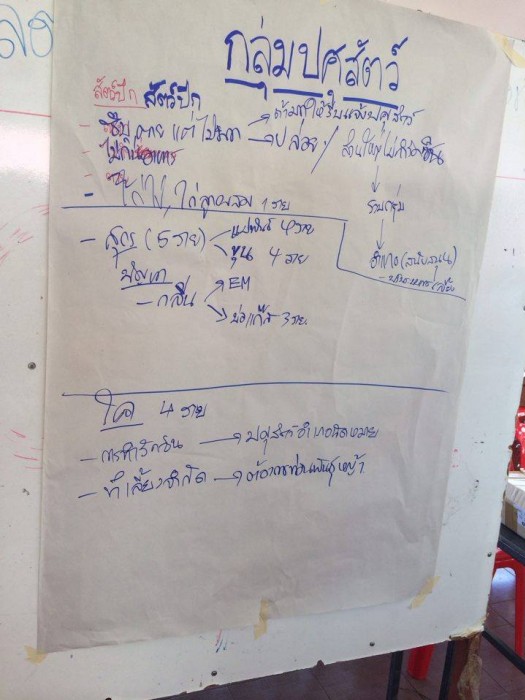 ลด
กลุ่มปศุสัตว์
สัตว์ปีก สัตว์ปีก
- ซึม ตาย แต่ไม่มาก → ถ้ามากให้รีบแจ้งปศุสัตว์
→ ปล่อย / ส่วนใหญ่ไม่
ไม่กินอาหาร
- ไก่ไข่, ไก่ลูกผสม 1 ราย
รวมกลุ่ม
- สุกร (5 ราย) แม่พันธุ์ 4 ราย
ขุน 4 ราย
อำเภอ (สนับสนุน)
ปัญหา
- กลิ่น EM
บ่อแก๊ส 3 ราย
โค 4 ราย
- การทำวัคซีน → ปศุสัตว์อำเภอ
- ที่เลี้ยงจำกัด → ต้องการท่อนพันธุ์หญ้า